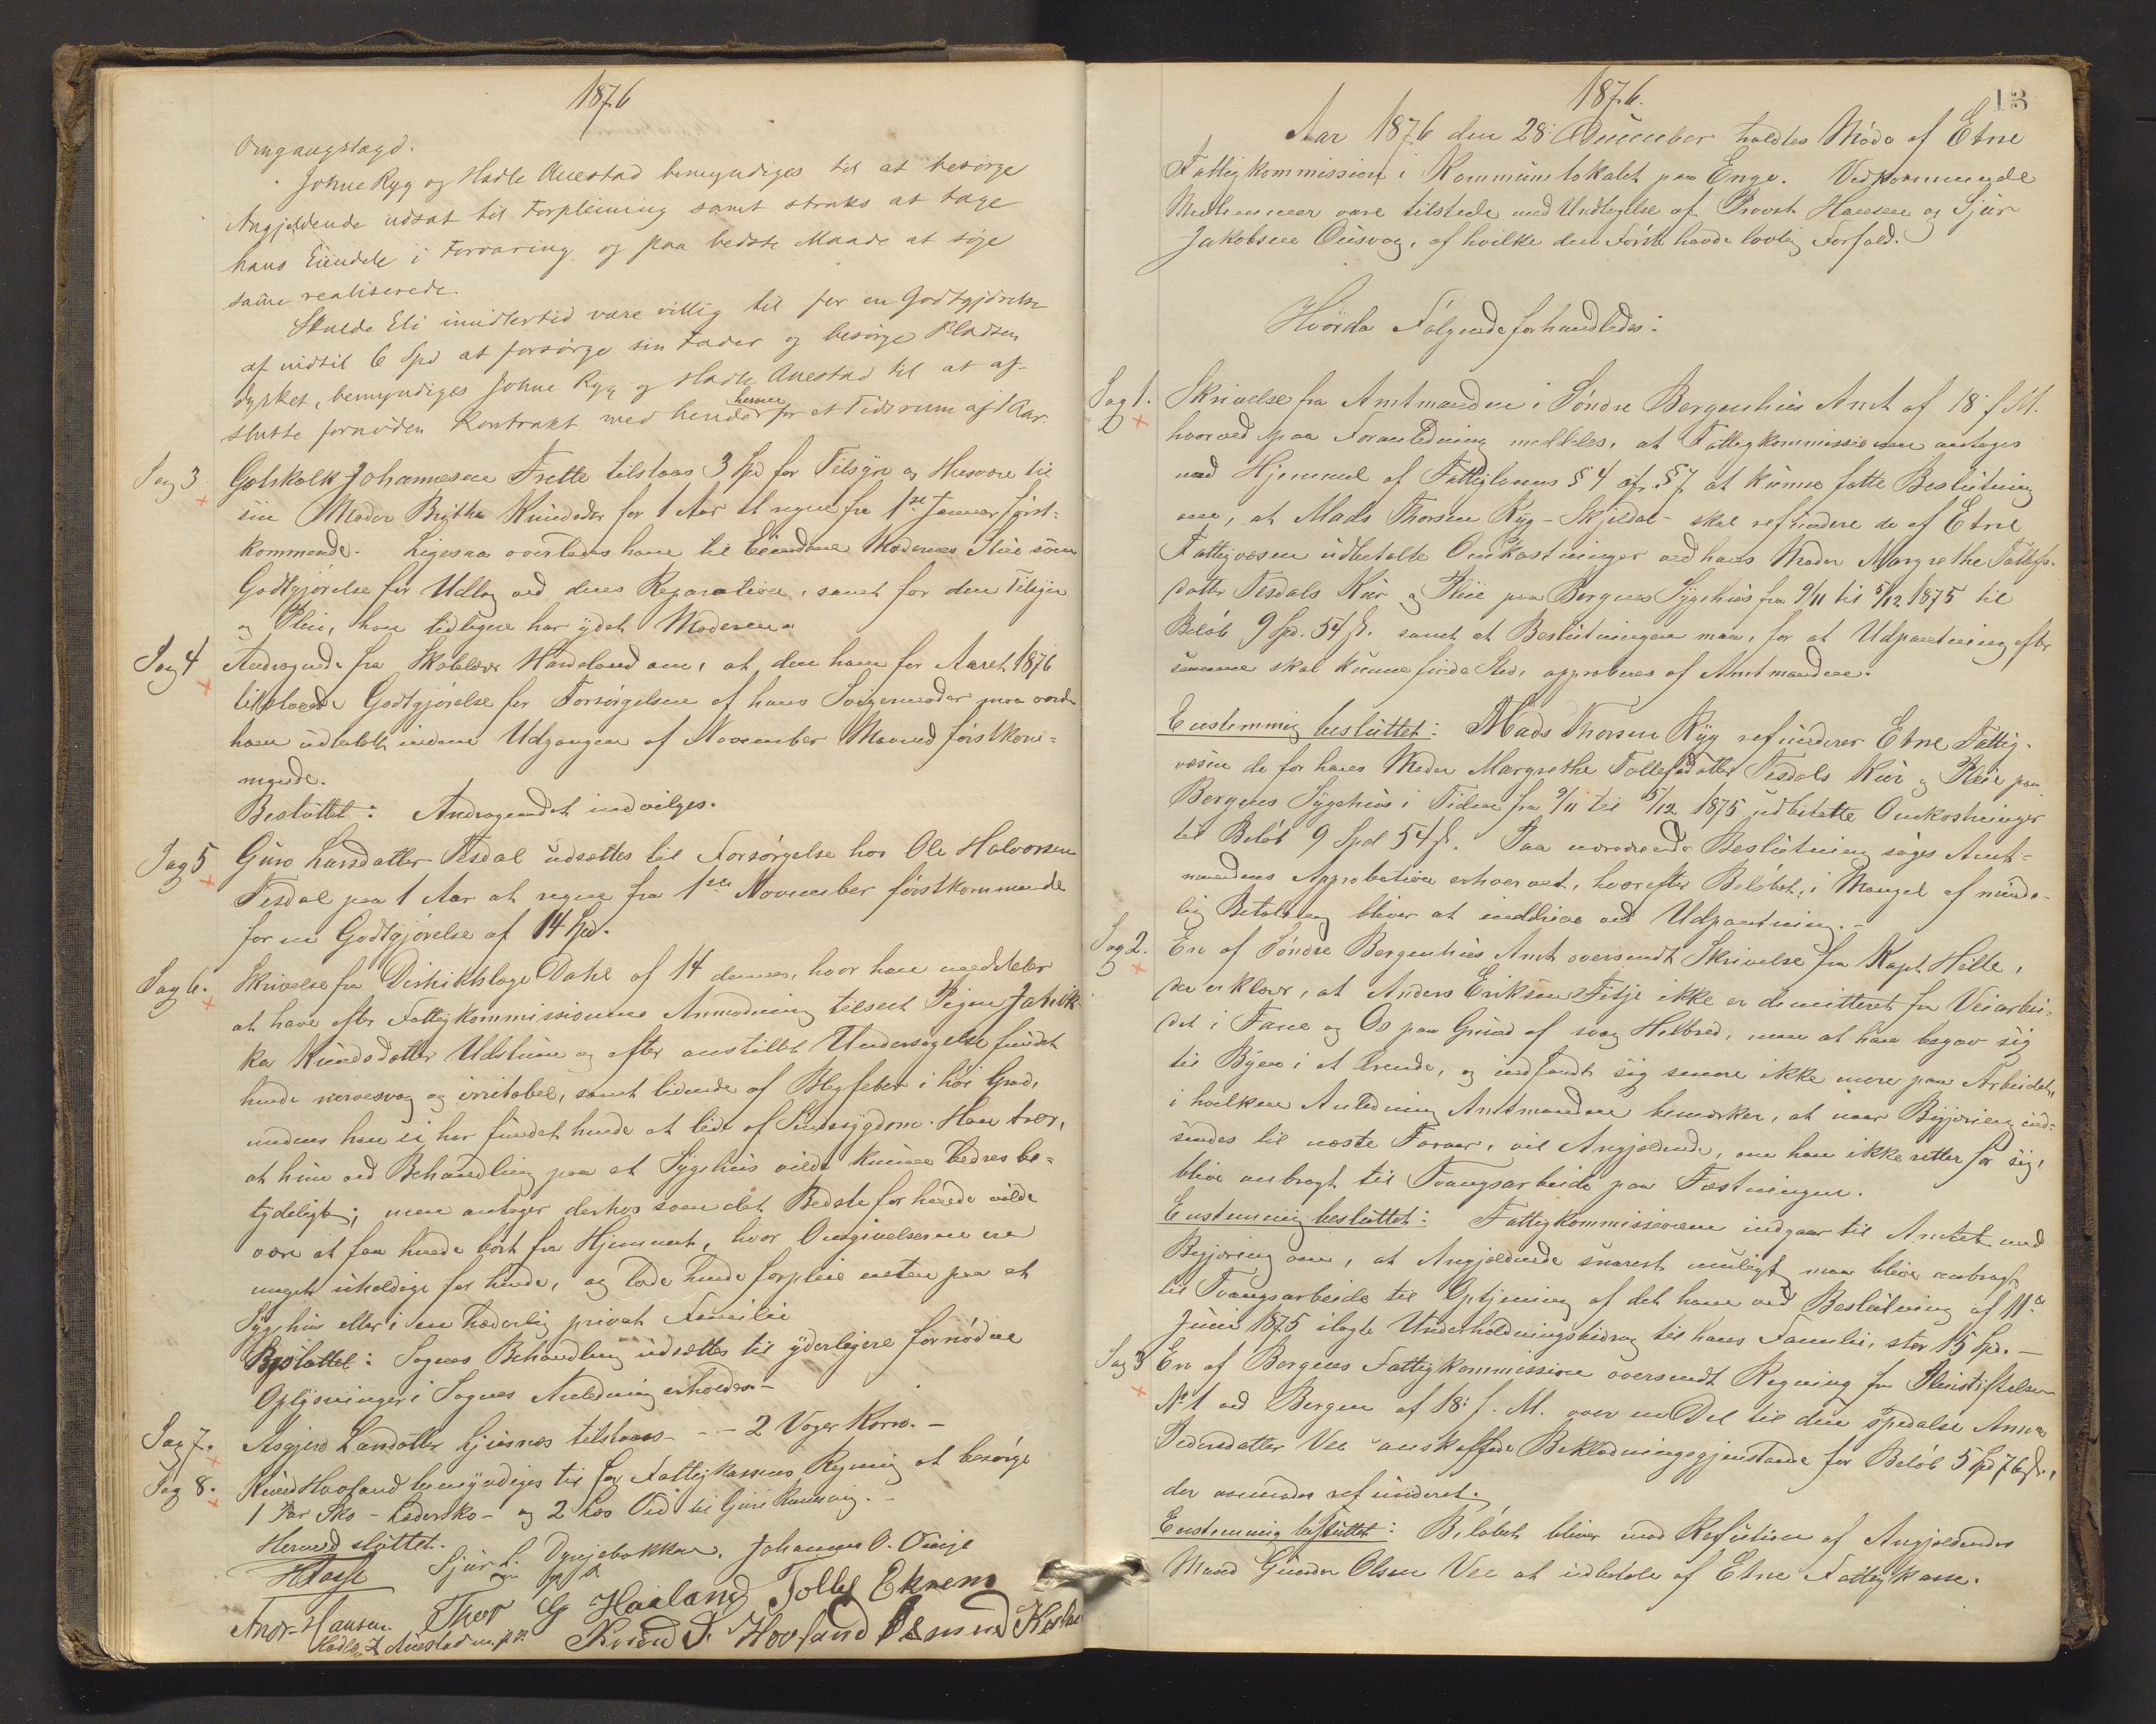 1876
Omgangslagd.
Johne Ryg og Hadle Auestad bemyndiges til at besørge
Angjeldende udsat til Forpleining samt straks at tage
hans Eiendele i Forvaring og paa bedste Maade at søge
samme realiserede.
Skulde Eli imidlertid være villig til for en Godtgjørelse
af indtil 6 Spd at forsørge sin Fader og besørge Pladsen
dyrket, bemyndiges Johne Ryg og Hadle Auestad til at af-
slutte fornøden Kontrakt med hende herom for et Tidsrum af 1 Aar.
Sag 3 Gotskalk Johannesen Frette tilstaaes 3 Spd for Tilsyn og Husvære til
sin Moder Brytha Knudsdtr for 1 Aar at regne fra 1ste Januar først-
kommende. Ligesaa overlades ham til Eiendom Moderens Stue som
Godtgjørelse for Udlæg ved dens Reparation, samt for den Tilsyn
og Pleie, han tidligere har ydet Moderen.
Sag 4 Andragende fra Skolelærer Håndeland om, at den ham for Aaret 1876
tilstaaede Godtgjørelse for Forsørgelsen af hans Svigermoder maa vorde
ham udbetalt inden Udgangen af November Maaned førstkom-
mende.
Besluttet: Andragendet indvilges.
Sag 5 Guro Larsdatter Tesdal udsættes til Forsørgelse hos Ole Halvorsen
Tesdal paa 1 Aar at regne fra 1ste November førstkommende
for en Godtgjørelse af 14 Spd.
Sag 6. Skrivelse fra Distriktslæge Dahl af 14 dennes, hvor han meddeler
at have efter Fattigkommissionens Anmodning tilseet Pigen
Knudsdatter og efter anstillet Undersøgelse fundet
hende nervesvag og irritabel, samt lidende af Blegsebot i høi Grad,
medens han ei har fundet hende at lide af Sindssygdom. Han tror,
at hun ved Behandling paa et Sygehus vilde kunne bedres be-
tydeligt; men antager derhos som det Bedste for hende vilde
være at faa hende bort fra Hjemmet, hvor Omgivelserne ere
meget uheldige for hende, og lade hende forpleie enten paa et
Sygehus eller i en hæderlig privat Familie
Besluttet: Sagens Behandling udsættes til yderligere fornødne
Oplysninger i Sagens Anledning erholdes.-
Sag 7. Asgjerd Larsdatter tilstaaes - - - 2 Voger Korn.-
Sag 8. Knud Hovland bemyndiges til for Fattigkassens Regning at besørge
1 Par Sko - Lædersko - og 2 Læs Ved til Guri
Hermed sluttet.
Sjur L. Dyrjebakken. Johannes O. Øinje
m p P
And. Hansen Thor G Haaland Tollef Ekrem
Hadle Auestad m. p. P. Knud T. Hovland
1876. 13
Aar 1876 den 28: December holdtes Møde af Etne
Fattigkommission i Kommunelokalet paa Enge. Vedkommende
Medlemmer vare tilstede med Undtagelse af Provst Hansen og Sjur
Jakobsen Øusvog, af hvilke den Første havde lovlig Forfald.
Hvorda Følgende forhandledes:
Sag 1. Skrivelse fra Amtmanden i Søndre Bergenhus Amt af 18: f. M.
hvorved paa Foranledning meddeles, at Fattigkommissionen antages
med Hjemmel af Fattiglovens § 4 cfr. § 7 at kunne fatte Beslutning
om, at Mads Thorsen Ryg - Skjeldal - skal refundere de af Etne
Fattigvæsen udbetalte Omkostninger ved hans Moder Margrethe Tollefs-
datter Tesdals Kur og Pleie paa Bergens Sygehus fra 9/11 til 5/12 1875 til
Beløb 9 Spd. 54 ß. samt at Beslutningen maa, for at Udpantning efter
samme skal kunne finde Sted, approberes af Amtmanden.
Enstemmig besluttet: Mads Thorsen Ryg refunderer Etne Fattig-
væsen de for hans Moder Margrethe Tollefsdatter Tesdals Kur og Pleie paa
Bergens Sygehus i Tiden fra 9/11 til 5/12 1875 udbetalte Omkostninger
til Beløb 9 Spd 54 ß. Paa nærværende Beslutning søges Amt-
mandens Approbation erhvervet, hvorefter Beløbet, i Mangel af minde-
lig Betaling bliver at inddrive ved Udpantning.-
Sag 2. En af Søndre Bergenhus Amt oversendt Skrivelse fra Kapt. Hille,
der erklærer, at Anders Eriksen Fitje ikke er demitteret fra Veiarbei-
det i Fane og Os paa Grund af svag Helbred, men at han begav sig
til Byen i et Ærende, og indfandt sig senere ikke mere paa Arbeidet,
i hvilken Anledning Amtmanden bemærker, at naar Begjæring ind-
sendes til næste Foraar, vil Angjældende, om han ikke retter for sig,
blive anbragt til Tvangsarbeide paa Fæstningen.
Enstemmig besluttet: Fattigkommissionen indgaar til Amtet med
Begjæring om, at Angjældende snarest muligt maa blive anbragt
til Tvangsarbeide til Optjening af det ham ved Beslutning af 11te
Juni 1875 ilagte Underholdningsbidrag til hans Familie, stor 15 Spd.-
Sag 3 En af Bergens Fattigkommission oversendt Regning fra Pleiestiftelsen
No 1 ved Bergen af 18: f. M. over en Del til den spedalske Anna
Pedersdatter Vee anskaffede Beklædningsgjenstande for Beløb 5 Spd 76 ß.,
der ansees refunderet.
Enstemmig besluttet: Beløbet bliver mod Refusion af Angjældendes
Mand Gunder Olsen Vee at udbetale af Etne Fattigkasse.